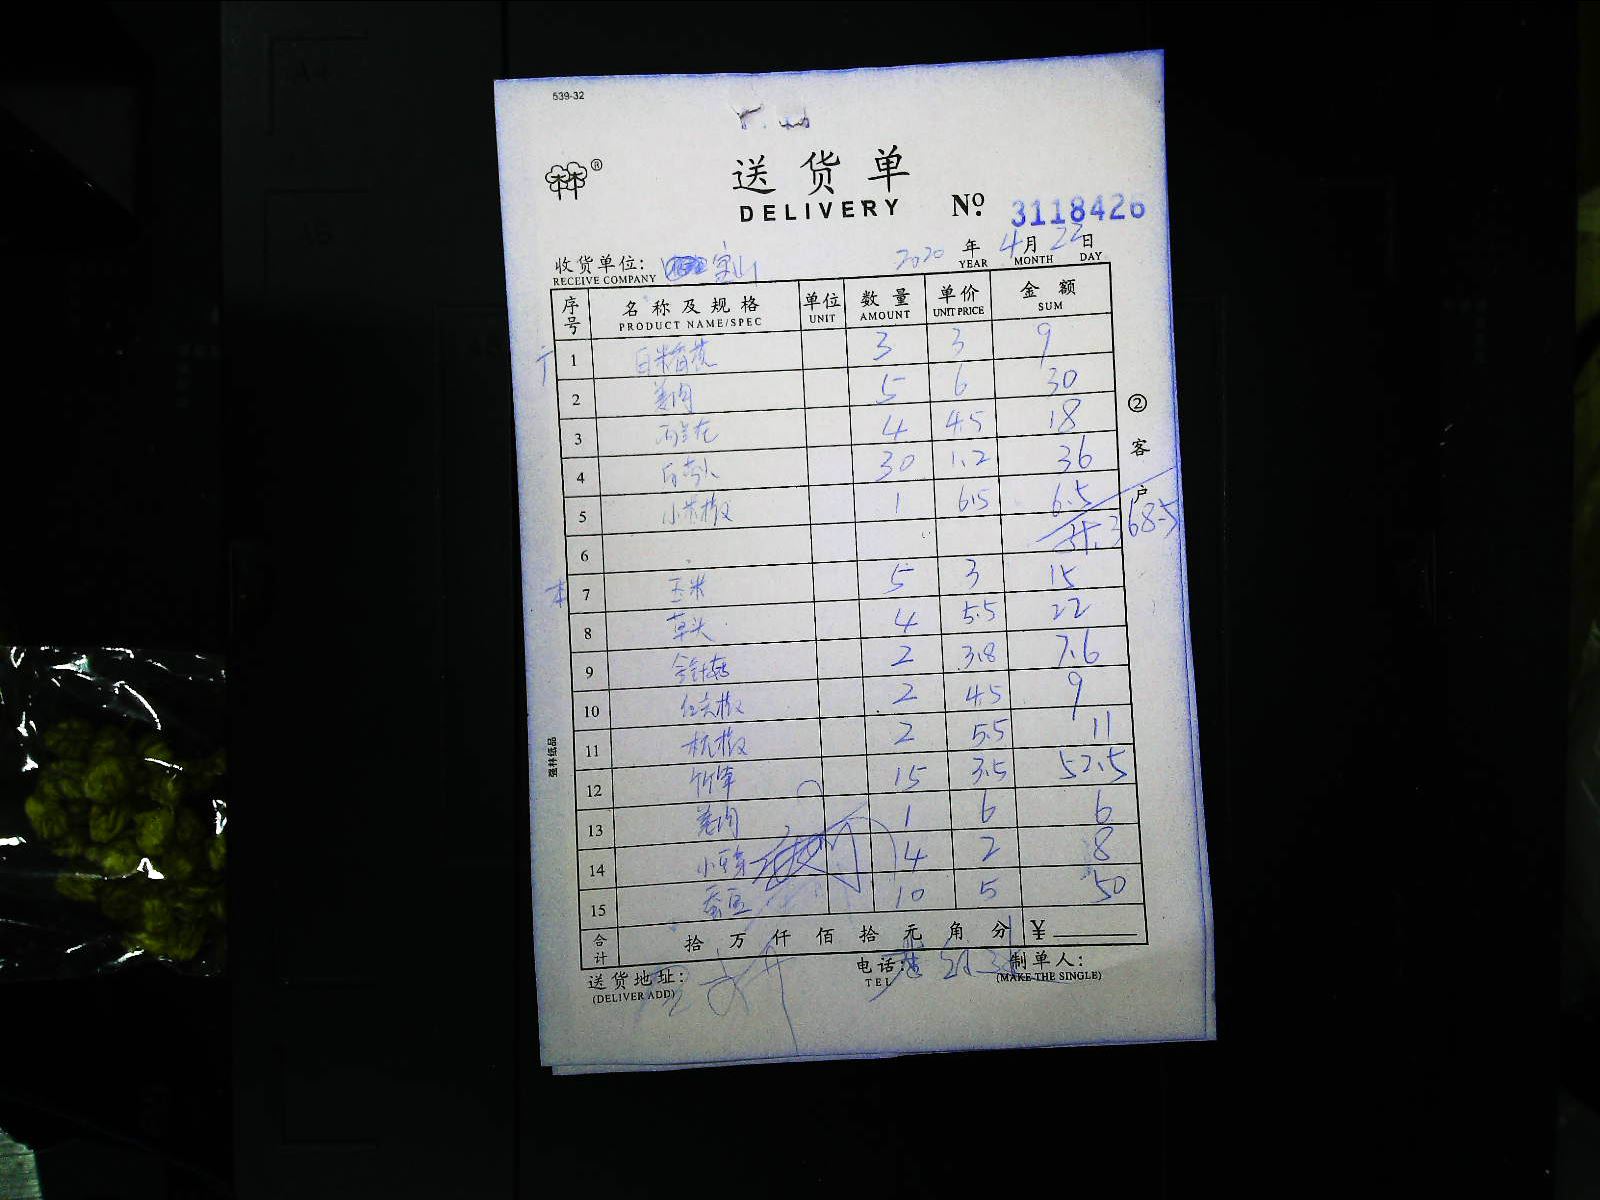 539-32
送货单
DELIVERY No. 3118426
收货单位: 宝山 2020 年 4 月 22 日
RECEIVE COMPANY YEAR MONTH DAY
序号 名称及规格 单位 数量 单价 金额
PRODUCT NAME/SPEC UNIT AMOUNT UNIT PRICE SUM
1 3 3 9
2 姜肉 5 6 30
3 西兰花 4 4.5 18
4 30 1.2 36
5 小米椒 1 6.5 6.5
6
7 玉米 5 3 15
8 草头 4 5.5 22
9 金针菇 2 3.8 7.6
10 红尖椒 2 4.5 9
11 杭椒 2 5.5 11
12 竹笋 15 3.5 52.5
13 姜肉 1 6 6
14 4 2 8
15 蚕豆 10 5 50
合计 拾 万 仟 佰 拾 元 角 分 ¥
送货地址: 电话: 制单人:
(DELIVER ADD) TEL (MAKE THE SINGLE)
②客户
强林纸品